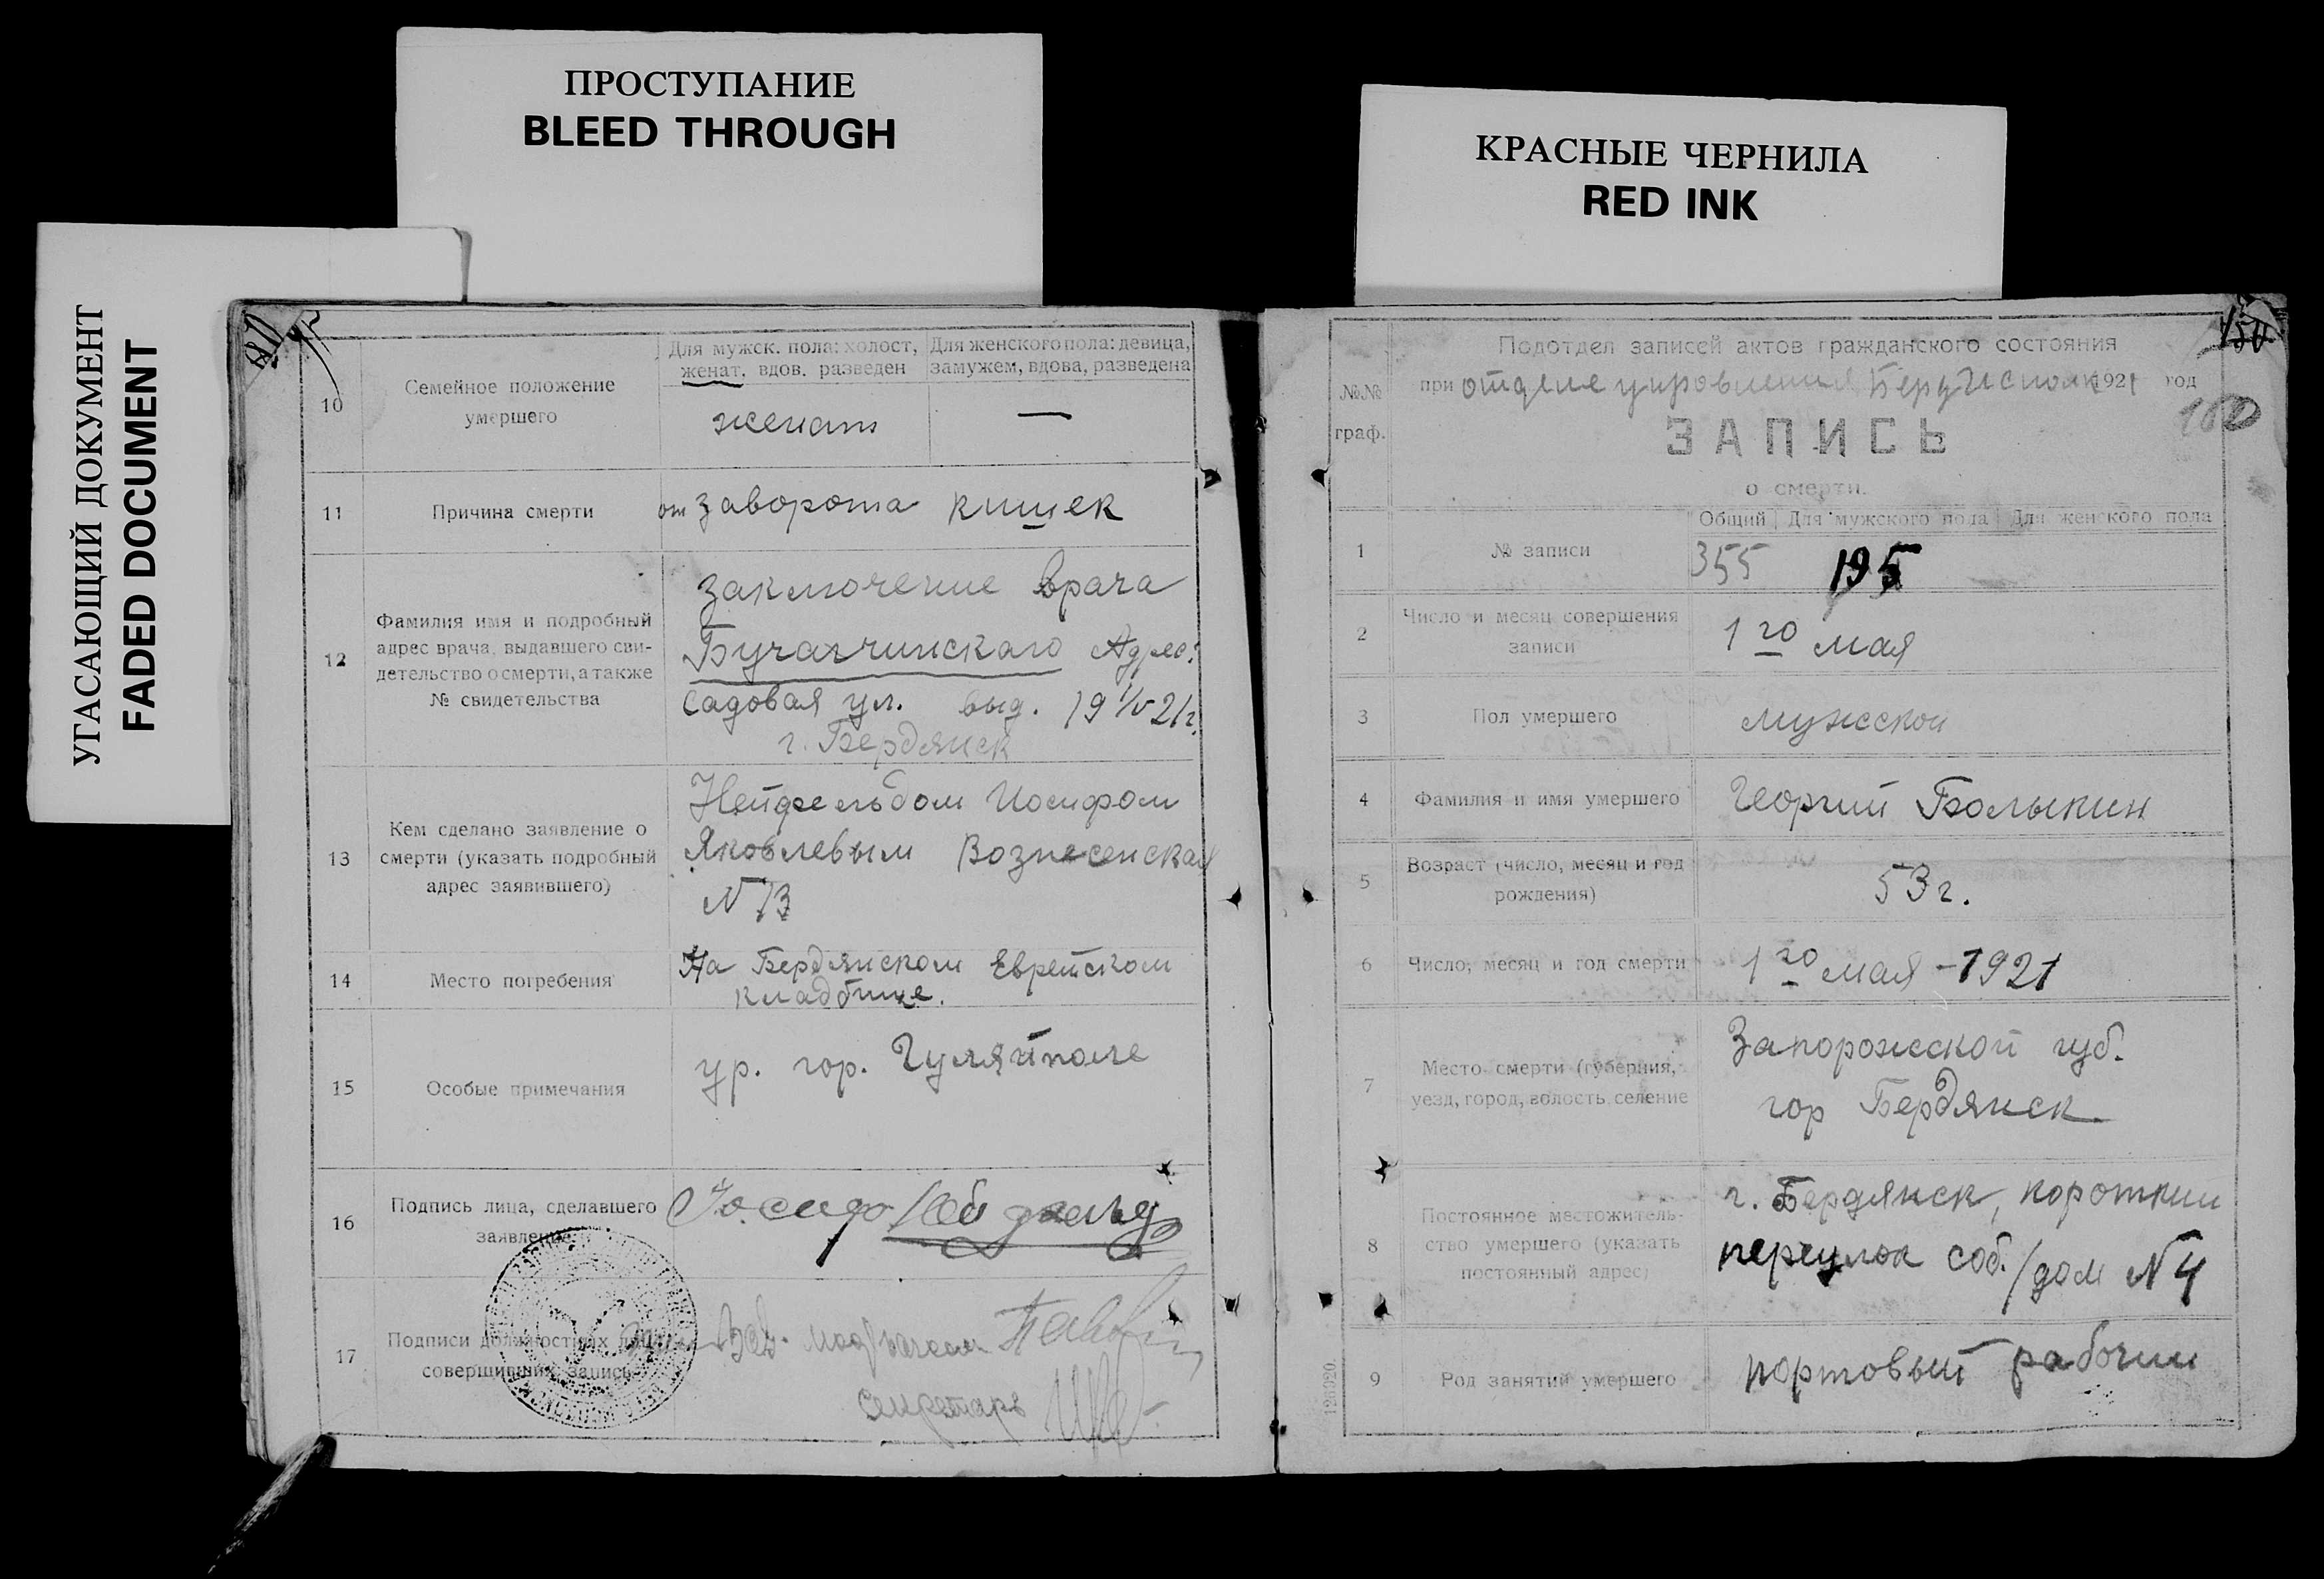 ПРОСТУПАНИЕ
BLEED THROUGH
КРАСНЫЕ ЧЕРНИЛА
RED INK
УГАСАЮЩИЙ ДОКУМЕНТ
FADED DOCUMENT
10
Семейное положение
умершего
Для мужск. пола: холост,
женат, вдов. разведен
Для женского пола: девица,
замужем, вдова, разведена
женат
—
11
Причина смерти
от заворота кишек
12
Фамилия имя и подробный
адрес врача, выдавшего сви-
детельство о смерти, а также
№ свидетельства
заключение врача
Адрес:
Садовая ул. выд. 19 1/V 21г.
г. Бердянск
13
Кем сделано заявление о
смерти (указать подробный
адрес заявившего)
Нейфельдом Иосифом
Яковлевым Вознесенская
N 13
14
Место погребения
На Бердянском Еврейском
кладбище.
15
Особые примечания
ур. гор. Гуляйполе
16
Подпись лица, сделавшего
заявление
17
Подписи должностных лиц,
совершивших запись
Зав.
Секретарь
150
160
№№
граф.
Подотдел записей актов гражданского состояния
при отделе управления 1921 год
ЗАПИСЬ
о смерти.
1
№ записи
Общий
Для мужского пола
Для женского пола
355
195
2
Число и месяц совершения
записи
1го мая
3
Пол умершего
мужской
4
Фамилия и имя умершего
Георгий Болыкин
5
Возраст (число, месяц и год
рождения)
53 г.
6
Число, месяц и год смерти
1го мая - 1921
7
Место смерти (губерния,
уезд, город, волость, селение
Запорожской губ.
гор Бердянск
8
Постоянное местожитель-
ство умершего (указать
постоянный адрес)
г. Бердянск, короткий
переулок соб. /дом N 4
9
Род занятий умершего
портовый рабочий